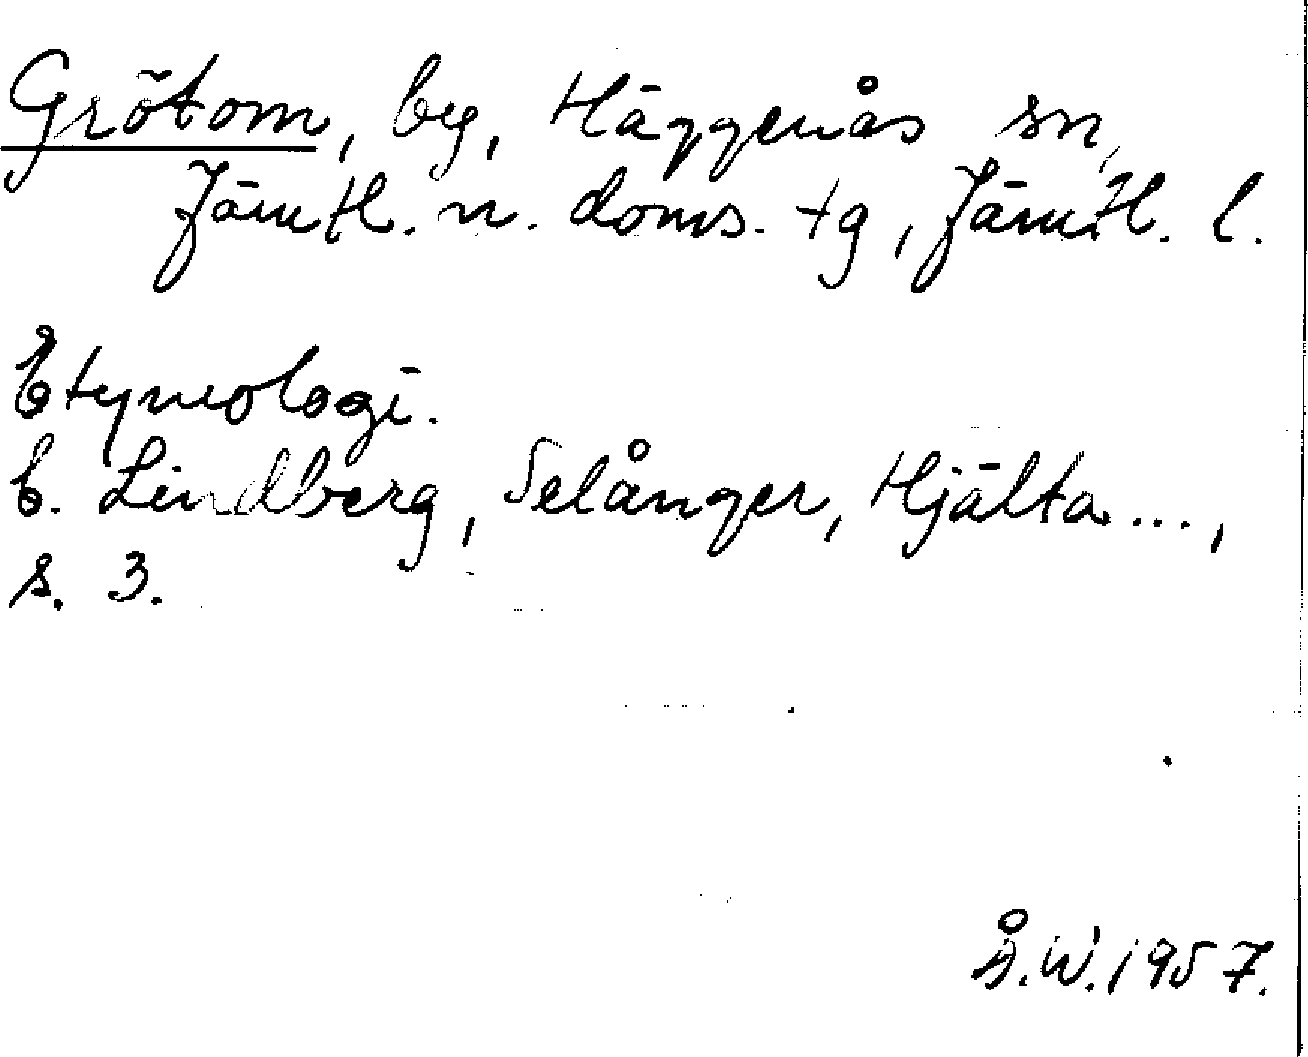 Grötom, by, Häggenås sn,
Jämtl. n. doms. tg, Jämtl. l.
Etymologi.
E. Lindberg, Selånger, Hjälta...,
s. 3.
Å.W. 1957.